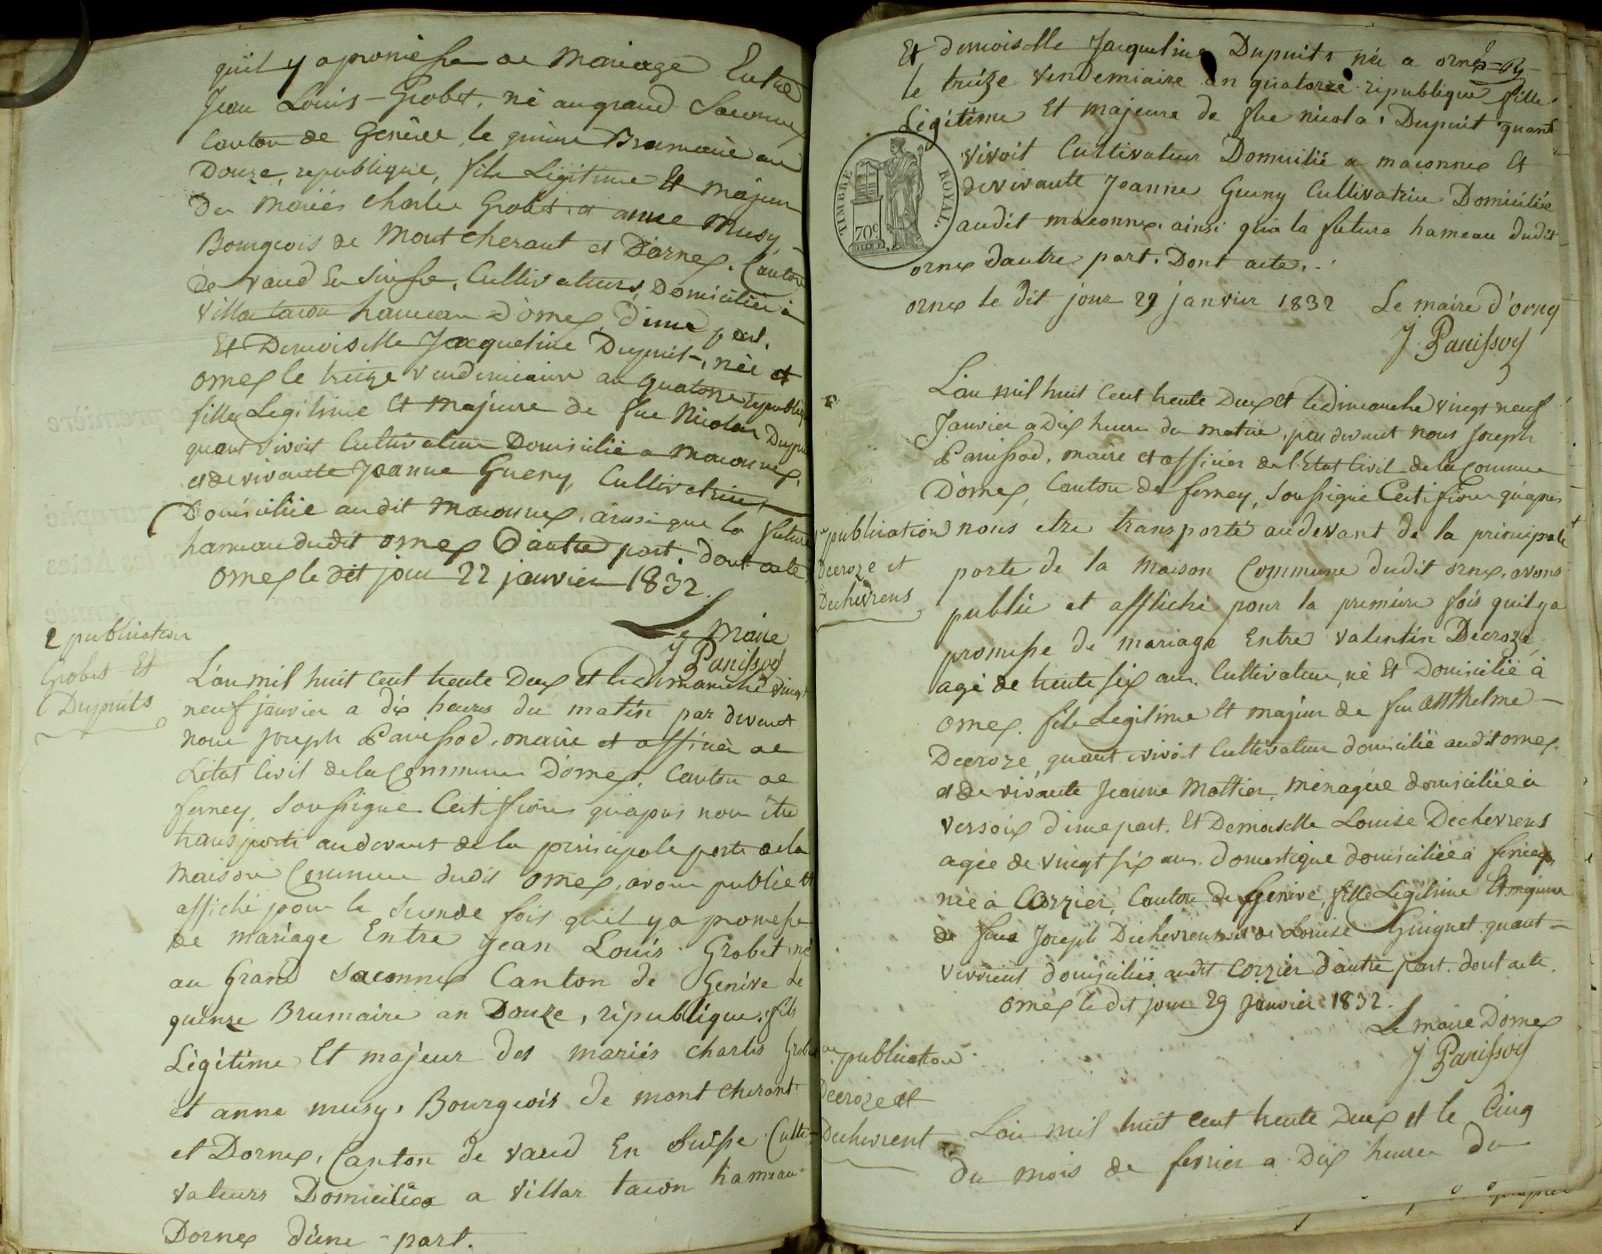 qu'il y a promesse de Mariage Entre
Jean Louis Grobet, né au grand Saconnex
Canton de Genève le quinze Brumaire an
Douze, republique, fils Légitime Et Majeur
des Mariés Charles Grobet et anne Musy
Bourgeois de Montcherant et Dornex. Canton
de Vaud En Suisse, Cultivateurs Domiciliés à
Villar tacon hameau d'ornex d'une part.
Et Demoiselle Jacqueline Dupuit, née a
ornex le treize vendemiaire an quatorze republique
fille Legitime Et Majeure de feu Nicolas Dupuit
quant vivoit Cultivateur Domicilié a Maconnex,
et de vivante Jeanne Gueny, Cultivatrice
Domiciliée audit Maconnex, ainsi que la future
hameau dudit ornex D'autre part dont acte
ornex le dit jour 22 janvier 1832.
Le Maire
J Panissod
2 publication
Grobet Et
Dupuits
L'an mil huit cent trente Deux et le dimanche vingt
neuf janvier a dix heures du matin par devant
nous Joseph Panissod, maire et officier de
L'état Civil de la Commune D'ornex, Canton de
ferney, Soussigné Certifions qu'apres nous être
transporté au devant de la principale porte de la
Maison Commune dudit ornex, avons publié et
affiché pour la seconde fois qu'il y a promesse
de mariage Entre Jean Louis Grobet né
au Grand Saconnex Canton de Genève Le
quinze Brumaire an Douze, république, fils
Légitime Et majeur des mariés charles Grobet
et anne musy, Bourgeois de mont cherant
et Dornex, Canton de vaud En Suisse Culti-
vateurs Domiciliés a Villar tacon hameau
Dornex d'une part.
Et demoiselle Jacqueline Dupuits née a ornex
le treize vendemiaire an quatorze république fille
Légitime Et majeure de feu nicolas Dupuit quant
vivoit Cultivateur Domicilié a maconnex Et
de vivante Jeanne Gueny Cultivatrice Domiciliée
audit maconnex, ainsi qu'a la future hameau dudit
ornex dautre part. Dont acte.
TIMBRE ROYAL
70c
ornex le dit jour 29 janvier 1832 Le maire d'ornex
J. Panissod
L'an mil huit Cent trente Deux et le dimanche vingt neuf
Janvier a Dix heures du matin, par devant nous Joseph
Panissod, maire et officier de l'Etat Civil de la Commune
D'ornex, Canton de ferney, Soussigné Certifions qu'apres
publication
Decroze et
Dechevrens
nous etre transporté au devant de la principale
porte de la Maison Commune dudit ornex, avons
publié et affiché pour la premiere fois qu'il y a
promesse de mariage Entre valentin Decroze
agé de trente six ans. Cultivateur, né Et Domicilié à
ornex. fils Legitime Et majeur de feu anthelme
Decroze, quant vivoit Cultivateur domicilié audit ornex.
et de vivante Jeanne Mattier, ménagère domiciliée à
versoix d'une part. Et Demoiselle Louise Dechevrens
agée de vingt six ans. domestique domiciliée à ferney
née à Corzier, Canton de Genève, fille Légitime Et majeure
de feus Joseph Dechevrens et de Louise Guignet quant
vivoient domiciliés audit Corzier d'autre part. dont acte.
ornex le dit jour 29 Janvier 1832.
Le maire D'ornex
J Panissod
publication
Decroze et
Dechevrent
L'an mil huit cent trente Deux et le Cinq
du mois de fevrier a Dix heures du